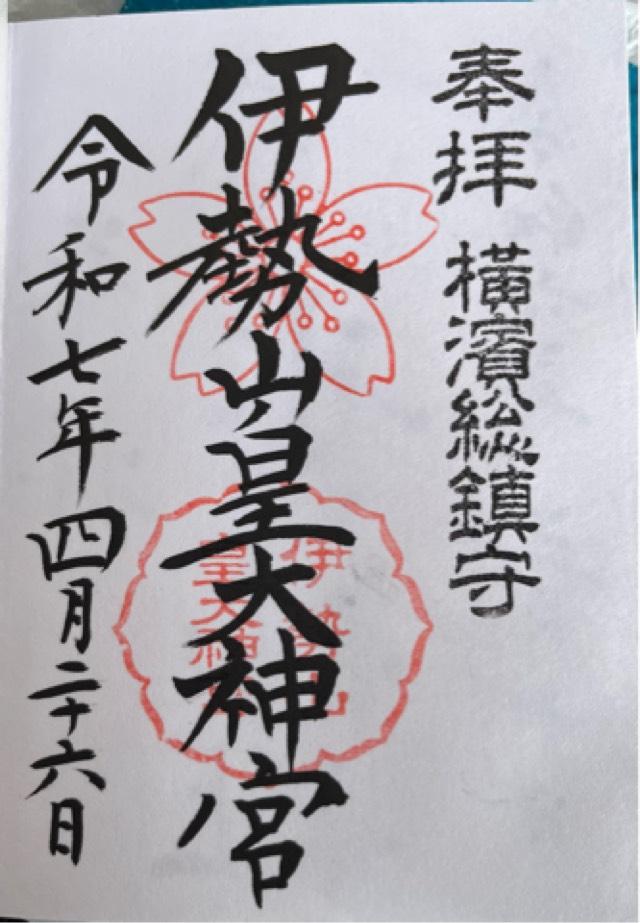 奉拝 横濱総鎮守
伊勢山皇大神宮
令和七年四月二十六日
伊勢山
皇大神宮